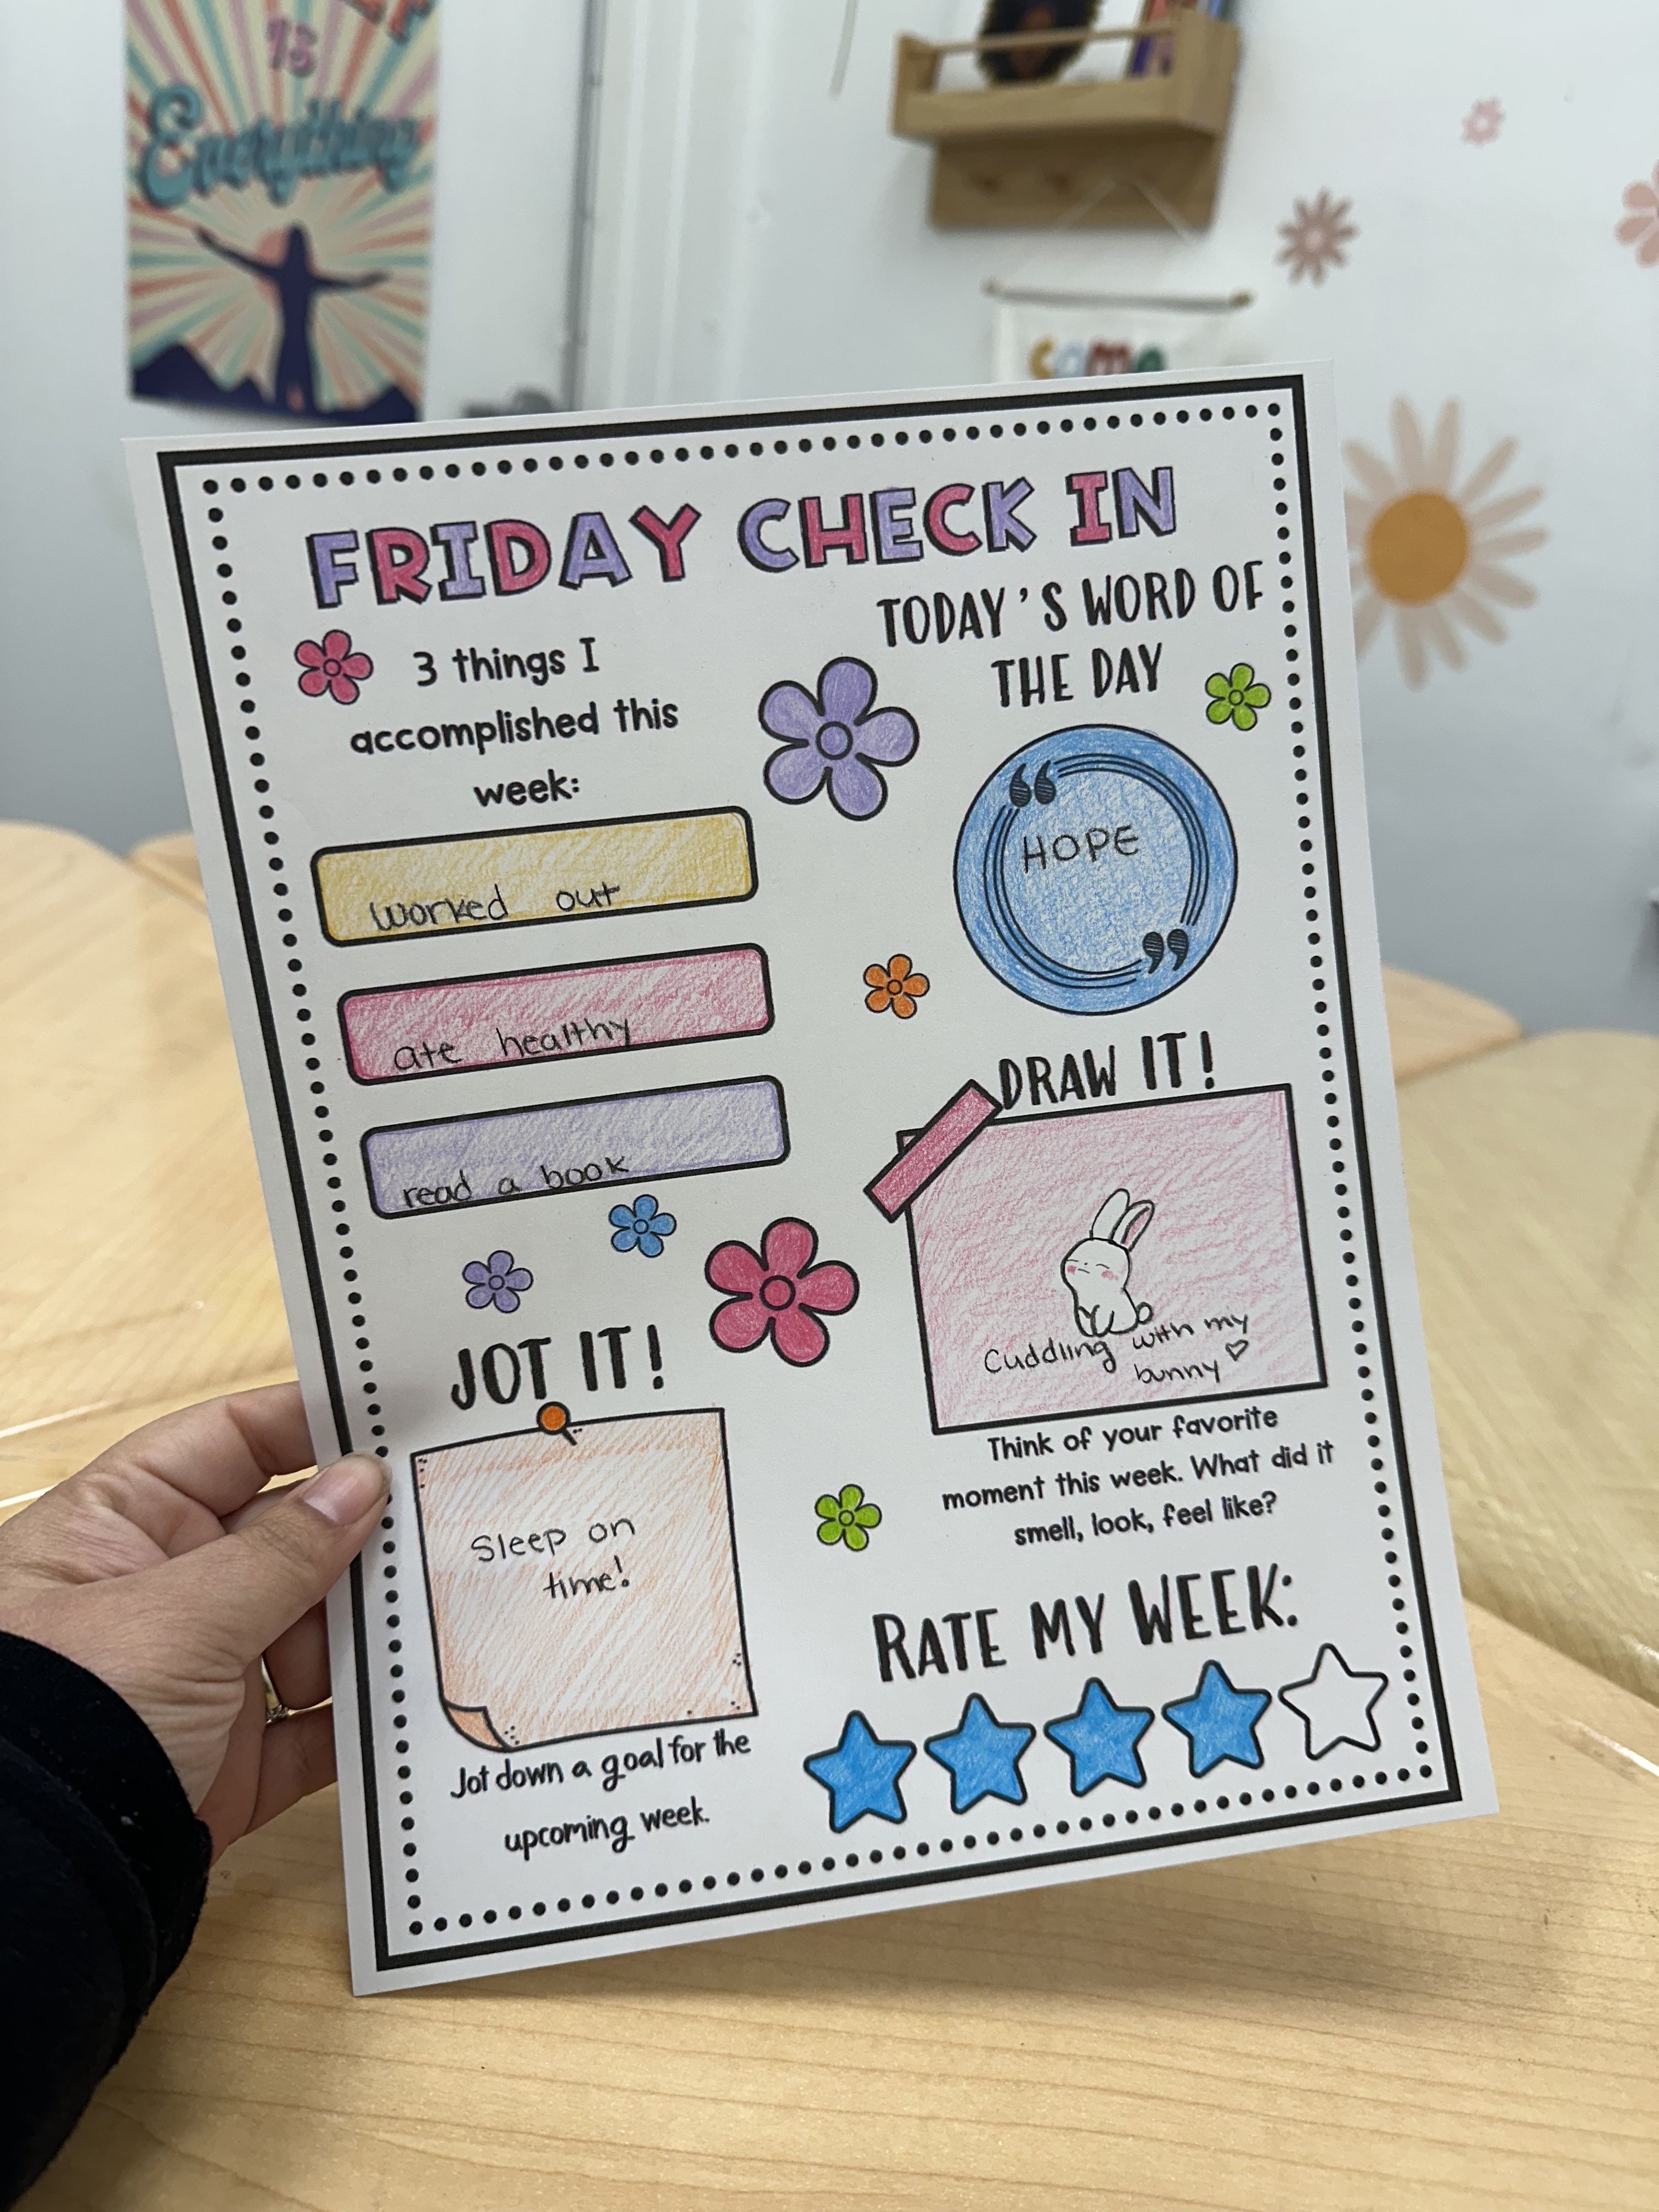 is
Everything
come
FRIDAY CHECK IN
3 things I
accomplished this
week:
worked out
ate healthy
read a book
TODAY'S WORD OF
THE DAY
“
HOPE
”
DRAW IT!
Cuddling with my
bunny ♡
Think of your favorite
moment this week. What did it
smell, look, feel like?
JOT IT!
Sleep on
time!
Jot down a goal for the
upcoming week.
RATE MY WEEK: